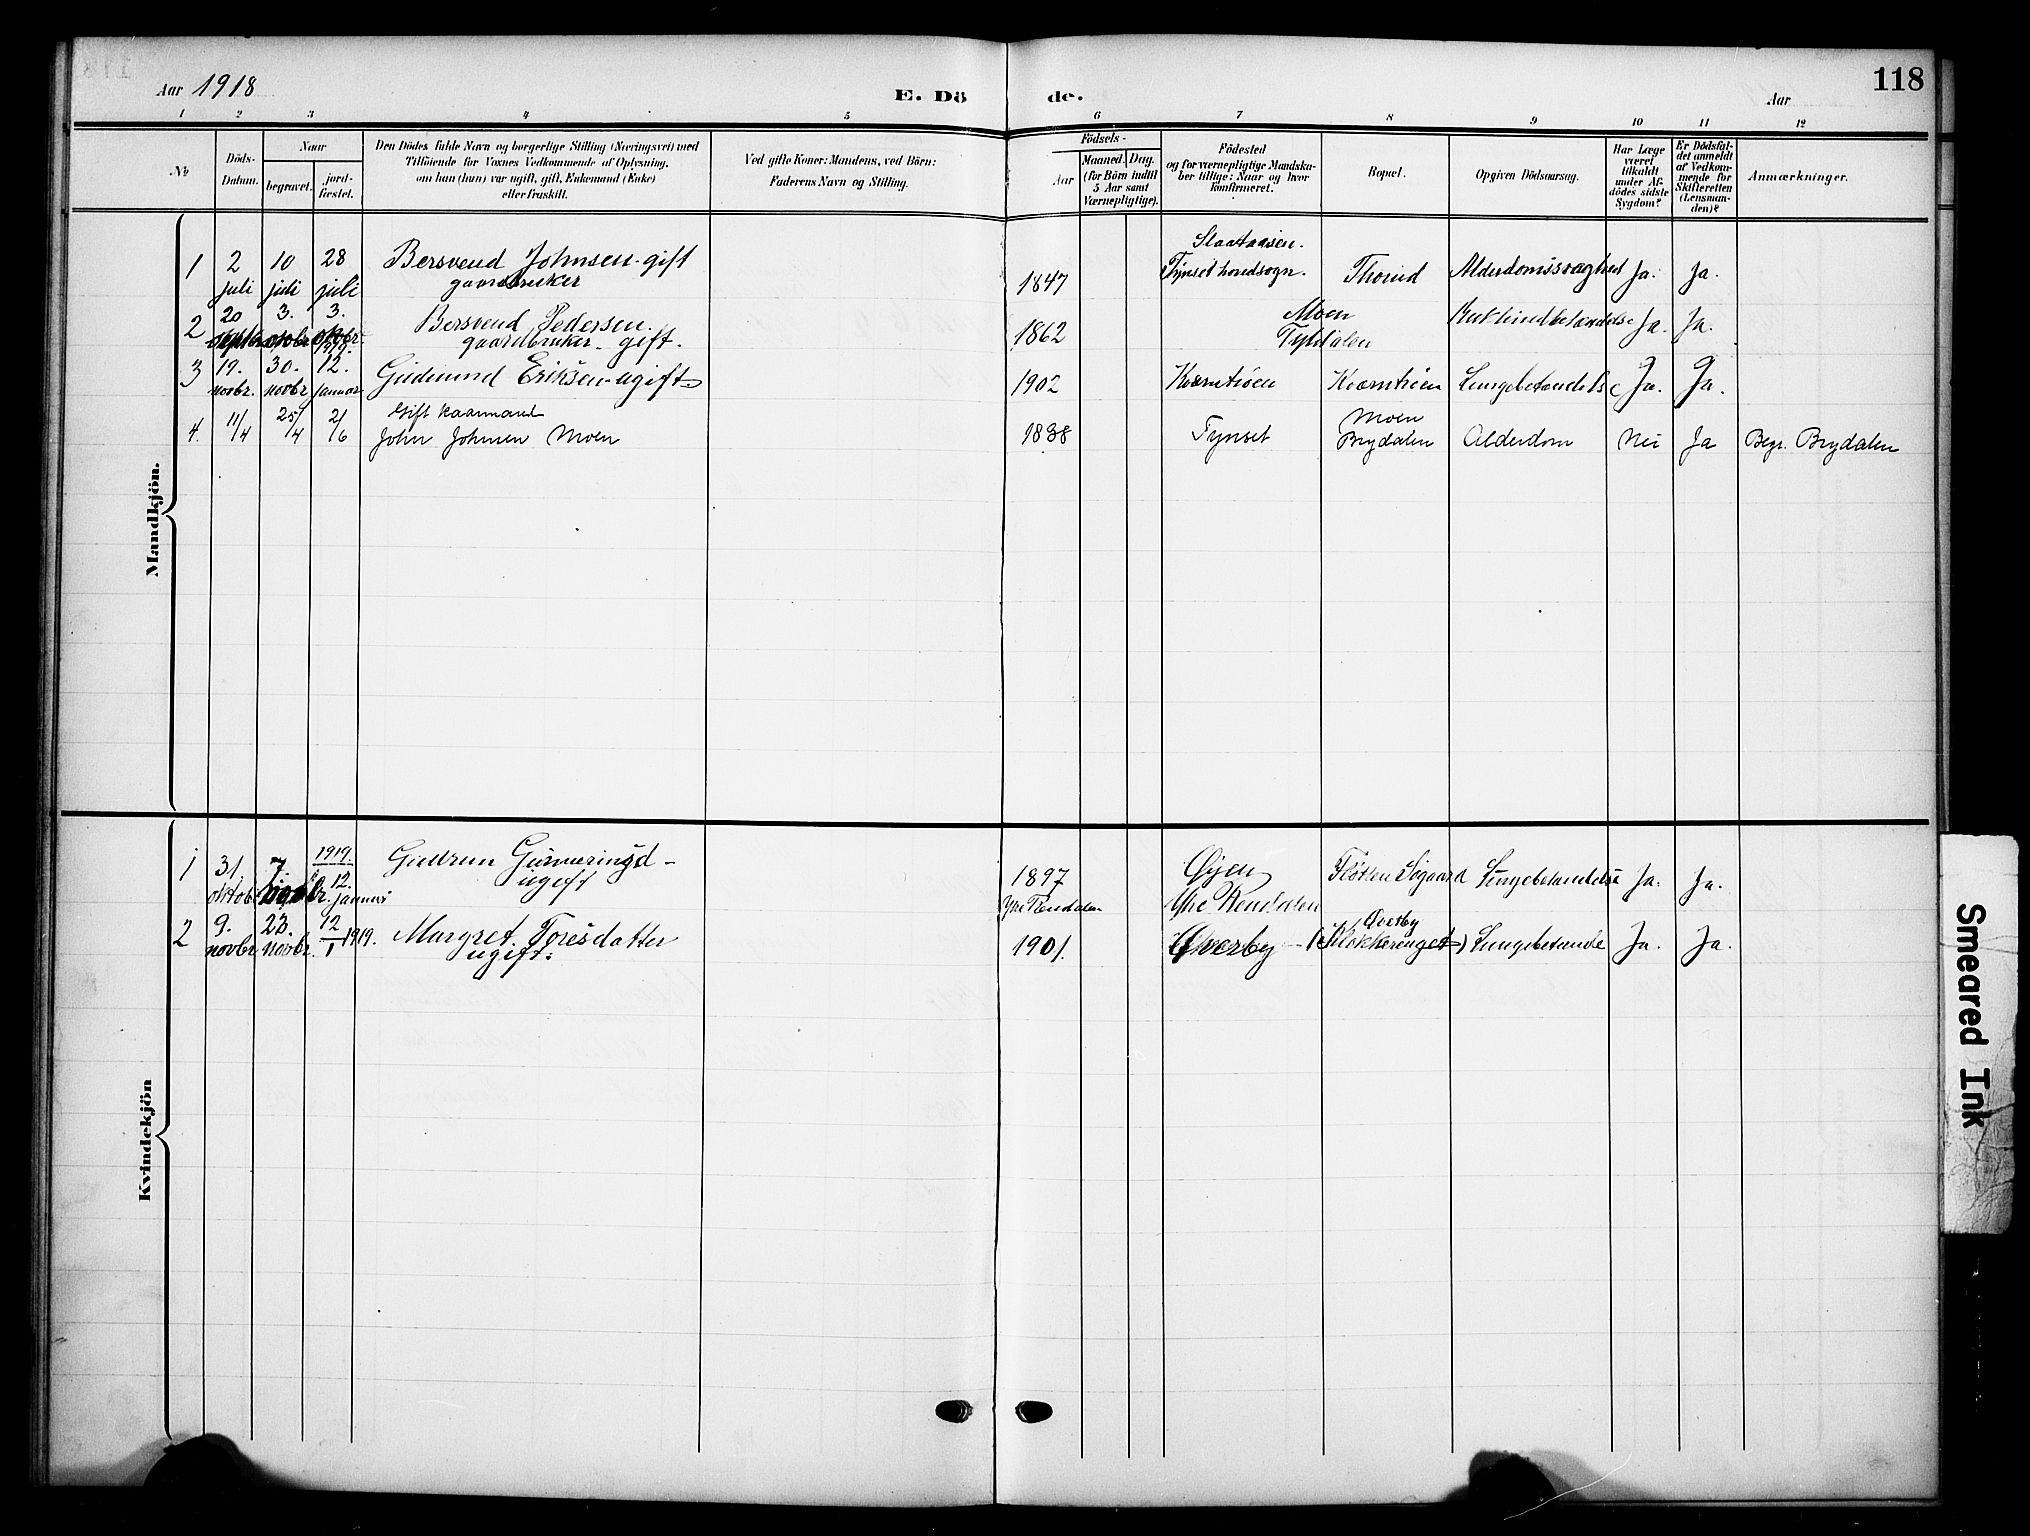 Aar 1918
E. Dö de.
Aar
118
1 2 3 4 5 6 7 8 9 10 11 12
No
Döds-
Datum.
Naar
begravet.
jord-
fæstet.
Den Dödes fulde Navn og borgerlige Stilling (Næringsvei) med
Tilföiende for Voxnes Vedkommende af Oplysning,
om han (hun) var ugift, gift, Enkemand (Enke)
eller fraskilt.
Ved gifte Koner: Mandens, ved Börn:
Faderens Navn og Stilling.
Födsels-
Aar
Maaned. Dag.
(for Börn indtil
5 Aar samt
Værnepligtige).
Födested
og for værnepligtige Mandska-
ber tillige: Naar og hvor
konfirmeret.
Bopæl.
Opgiven Dödsaarsag.
Har Læge
været
tilkaldt
under Af-
dödes sidste
Sygdom?
Er Dödsfal-
det anmeldt
af Vedkom-
mende for
Skifteretten
(Lensman-
den)?
Anmærkninger.
Mandkjön.
1 2 juli 10 juli 28 juli
Bersvend Johnsen gift
gaardbruker
1847
Tynset hovedsogn. Alderdomssvaghed Ja. Ja.
2 20 3. 3.
Bersvend Pedersen.
gaardbruker - gift.
1862
Moen
Tyldalen
Ja. Ja.
3 19. novbr. 30. novbr. 12. januar 1919
Gudmund Eriksen ugift
1902 Kværntrøen Kværntrøen Lungebetændelse Ja. Ja.
Gift kaarmand
4. 11/4 25/4 2/6 John Johnsen Moen
1838 Tynset Moen
Brydalen Alderdom Nei Ja Begr. Brydalen
Kvindekjön
1 31 oktob. 7. novbr. 1919. 12. januar
Gudrun
ugift
1897
Ytre Rendalen
Øyen
Ytre Rendalen
Lungebetændelse Ja. Ja.
2 9. novbr. 23. novbr. 12/1 1919.
Margret Toresdatter
ugift.
1901.
Øverby
Øverby
Lungebetænde Ja. Ja.
Smeared Ink